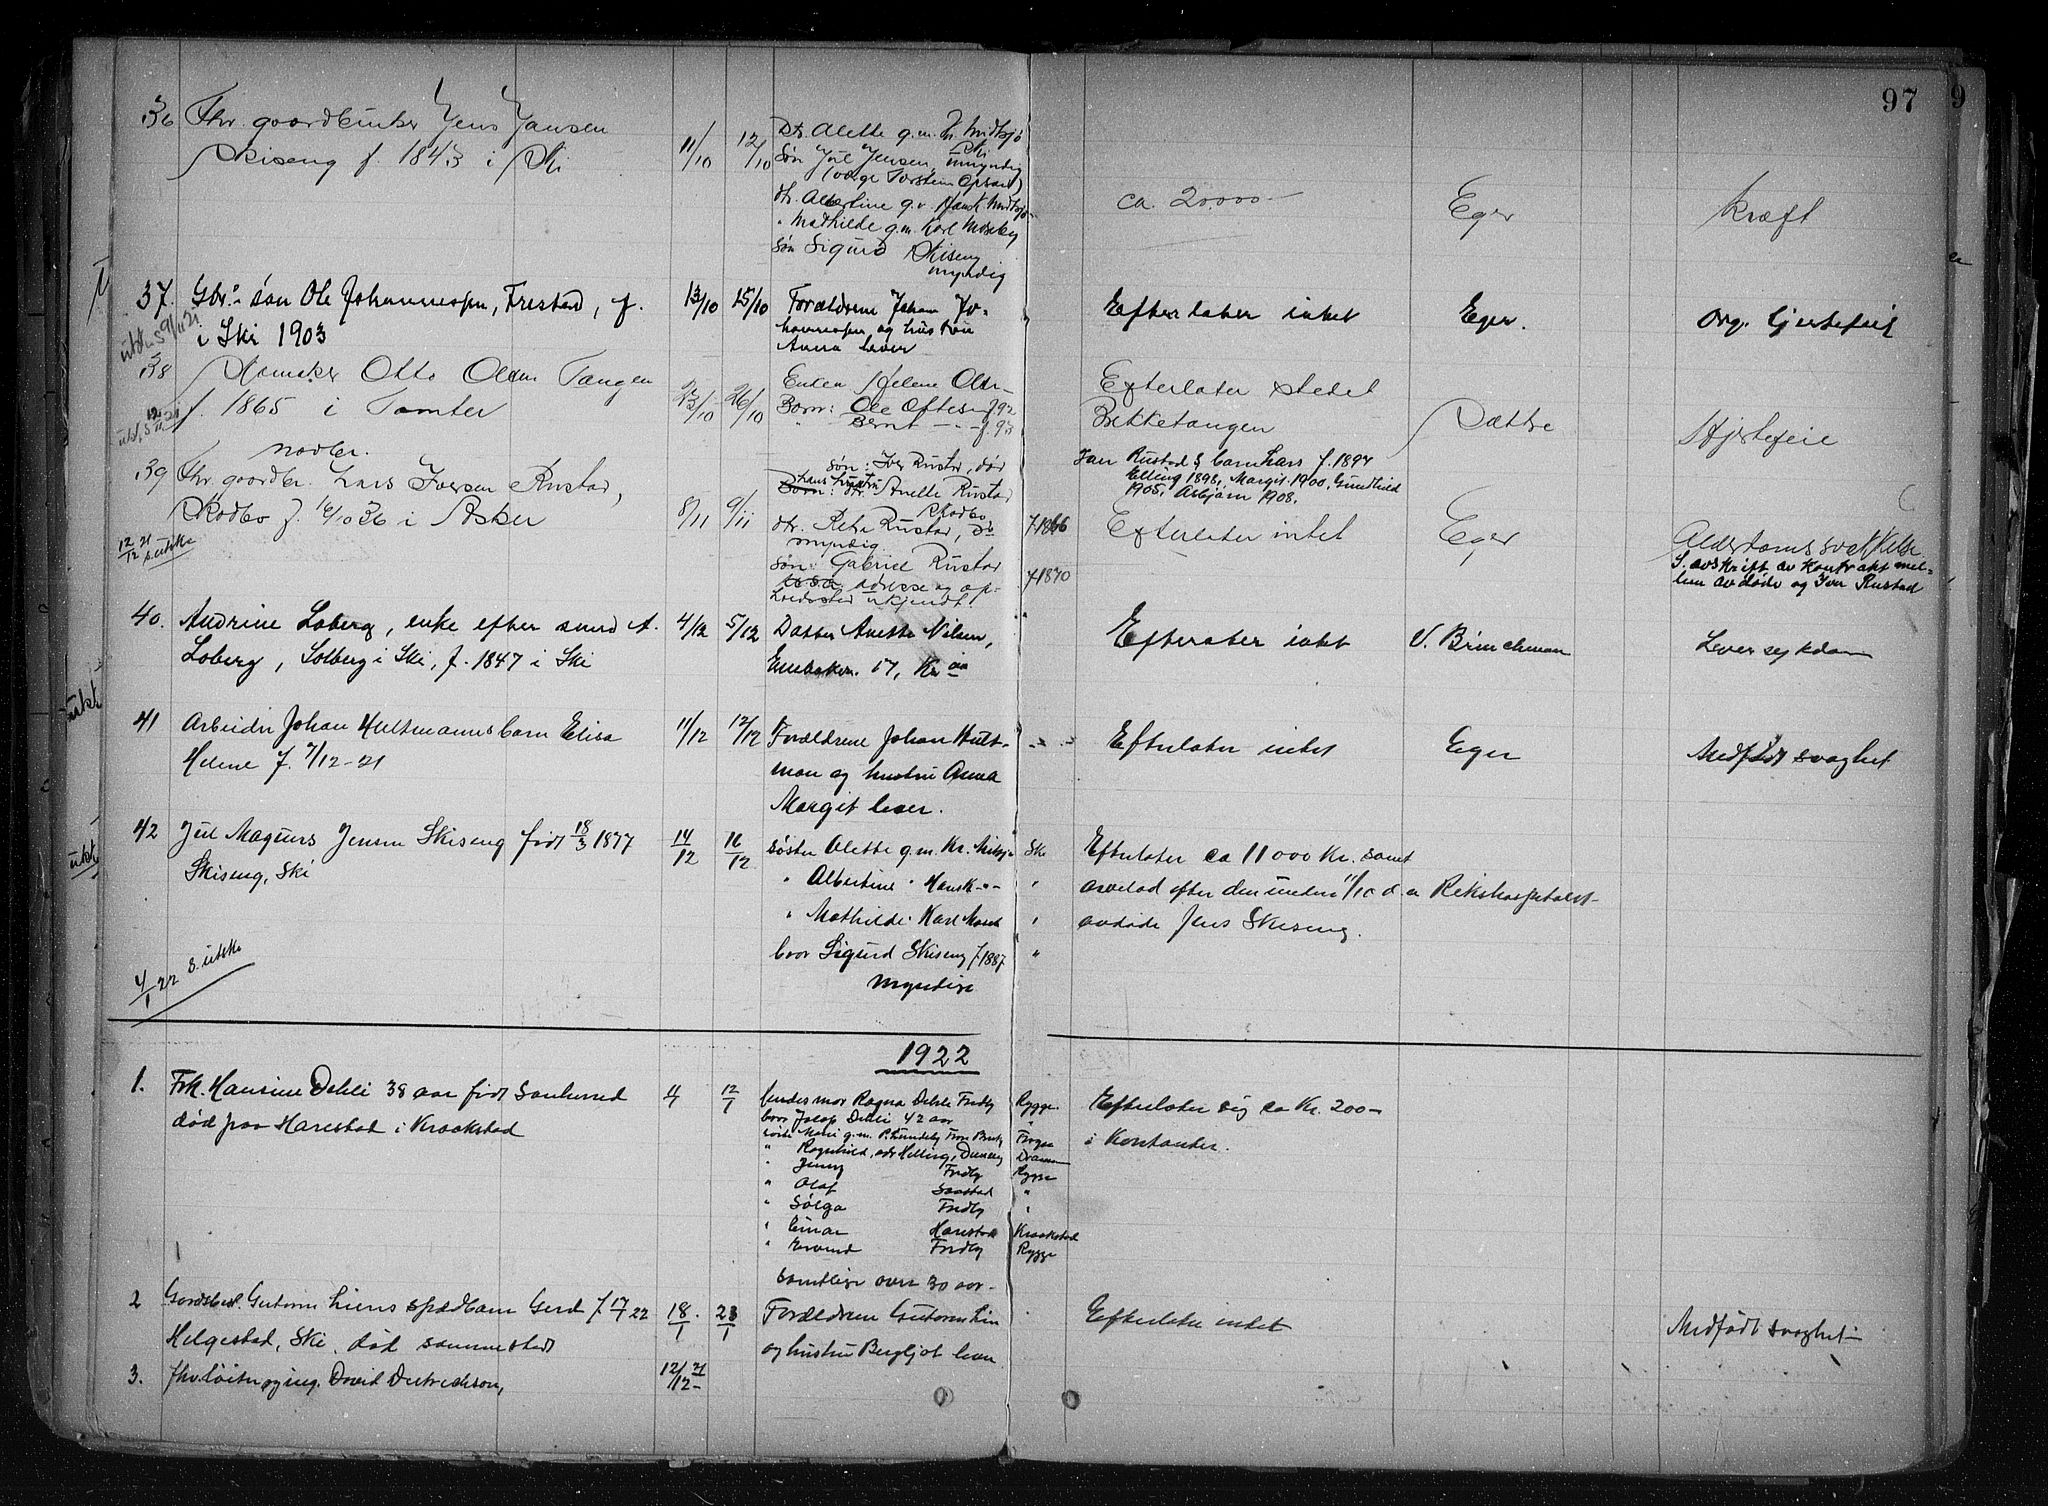 97
36 Fhv. gaardbruker Jens Jansen
Skiseng f. 1843 i Ski
11/10 12/10
Dtr. Alette g.m. Kr. Midtsjø
Ski
Søn Jul Jensen, umyndig
(værge Torstein Opsand)
dtr. Albertine g.m. Hans K. Midtsjø
" Mathilde g.m. Karl Moseby
søn Sigurd Skiseng
myndig
ca. 20000 -
Eger
Kræft
37. Gbr. søn Ole Johannessen, Frestad, f.
i Ski 1903
13/10 15/10
Forældrene Johan Jo-
hannessen og hustru
Anna lever
Efterlater intet
Eger.
Org. hjertefeil
38 Otto Olsen Tangen
f. 1865 i Tomter
23/10 26/10
Enken Helene Olsen
Børn: Ole Ottesen f. 92
" Bernt - " - f. 93
Efterlater stedet
Bekketangen
Sættre
Hjertefeil
39 Fhv. gaardbr. Lars Iversen Rustad,
nordbr.
Skodbo f. 16/10 36 i Asker
12/12 21 s. utskr.
8/11 9/11
søn: Iver Rustad, død
dtr. Anette Rustad
Skodbo
dtr. Petra Rustad, do
myndig
søn: Gabriel Rustad
adresse og op-
holdssted ukjendt.
f. 1866
f. 1870
Iver Rustad's barn Lars f. 1897
Elling 1898, Margit 1900, Gundhild
1905, Asbjørn 1908.
Efterlater intet
Eger
Alderdomssvakkelse
S. avskrift av kontrakt mel-
lem avdøde og Iver Rustad
40. Andrine Loberg, enke efter smed A.
Loberg, Solberg i Ski, f. 1847 i Ski
4/12 5/12
Datter Anette Nilsen,
Enebakvn. 17, Kr.ia
Efterlater intet
V. Brinchman
Leversykdom
41 Arbeider Johan Hultmanns barn Elisa
Helene f. 7/12-21
11/12 12/12
Forældrene Johan Hult-
man og hustru Anna
Margit lever.
Efterlater intet
Eger
Medfødt svaghet
42 Jul Magnus Jensen Skiseng født 18/3 1877
Skiseng, Ski
4/1 22 s. utskr.
14/12 16/12
søster Alette g.m. Kr. Midsjø Ski
" Albertine " Hans K - " - "
" Mathilde " Karl Moseb "
bror Sigurd Skiseng f. 1887 "
myndige
Efterlater ca 11 000 Kr. samt
arvelod efter den under 11/10 d.a.
avdøde Jens Skiseng.
Rikshospitalet
1922
1. Frk. Hansine Dehli 38 aar født Sanherred
død paa Harestad i Kraakstad
12/1
hendes mor Ragna Dehli Fredly Rygge
bror Jacob Dehli 42 aar "
søster Marie g.m. P. Lundeby
" Ragnhild
" Jenny Fredly Rygge
" Olaf Saastad "
" Solga Fredly "
" Einar Harestad Kraakstad
" Eivind Fredly Rygge
Samtlige over 30 aar.
Efterlater sig ca Kr. 200-
i Kontanter.
2 Gaardsbest. Guttorm Liens spædbarn Gerd f. 17/1 22
Helgestad, Ski, død sammesteds
18/1 23/1
Forældrene Guttorm Lien
og hustru Bergljot lever
Efterlater intet
Medfødt svaghet
3. Fhv. løitn. og ing. David Dietrichson,
12/12-21